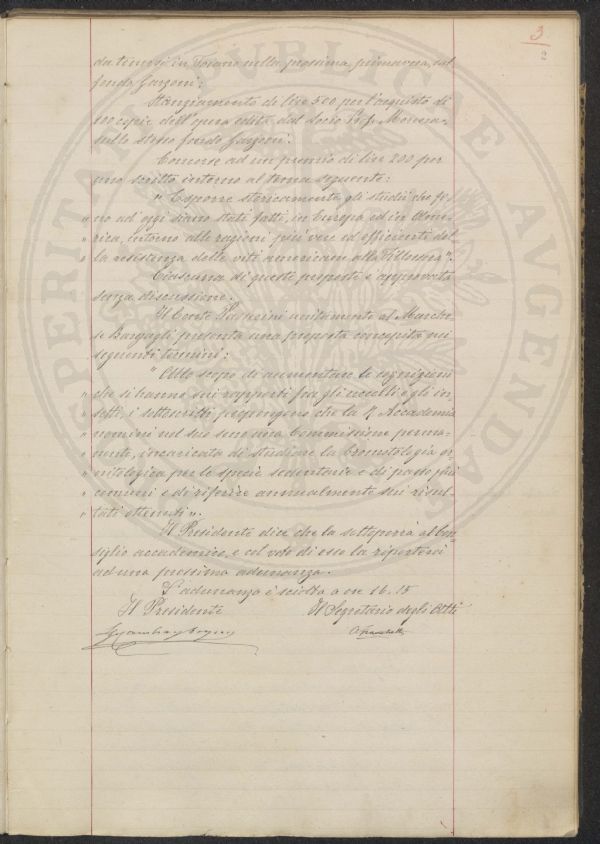 3
2
da tenersi in Toscana nella prossima primavera, sul
fondo Garzoni;
Stanziamento di lire 500 per l'acquisto di
100 copie dell'opera edita dal Socio Prof.
sullo stesso fondo Garzoni.
Concorso ad un premio di lire 200 per
uno scritto intorno al tema seguente:
"Esporre storicamente gli studii che fi=
" no ad oggi siano stati fatti, in Europa ed in Ame=
" rica, intorno alle ragioni più vere ed efficienti del=
" la resistenza delle viti americane alla Fillossera".
Ciascuna di queste proposte è approvata
senza discussione.
Il Conte Passerini unitamente al Marche=
se Bargagli presenta una proposta concepita nei
seguenti termini:
"Allo scopo di aumentare le cognizioni
" che si hanno sui rapporti fra gli uccelli e gli in=
" setti, i sottoscritti propongono che la R. Accademia
" nomini nel suo seno una Commissione perma=
" nente, incaricata di studiare la bromatologia or=
" nitologica per le specie sedentarie e di passo più
" comuni e di riferire annualmente sui risul=
" tati ottenuti".
Il Presidente dice che la sottoporrà al Con=
siglio accademico, e col voto di esso la riporterà
ad una prossima adunanza.
L'adunanza è sciolta a ore 16.15
Il Presidente Il Segretario degli Atti
PROSPERITATI PUBLICAE AUGENDAE